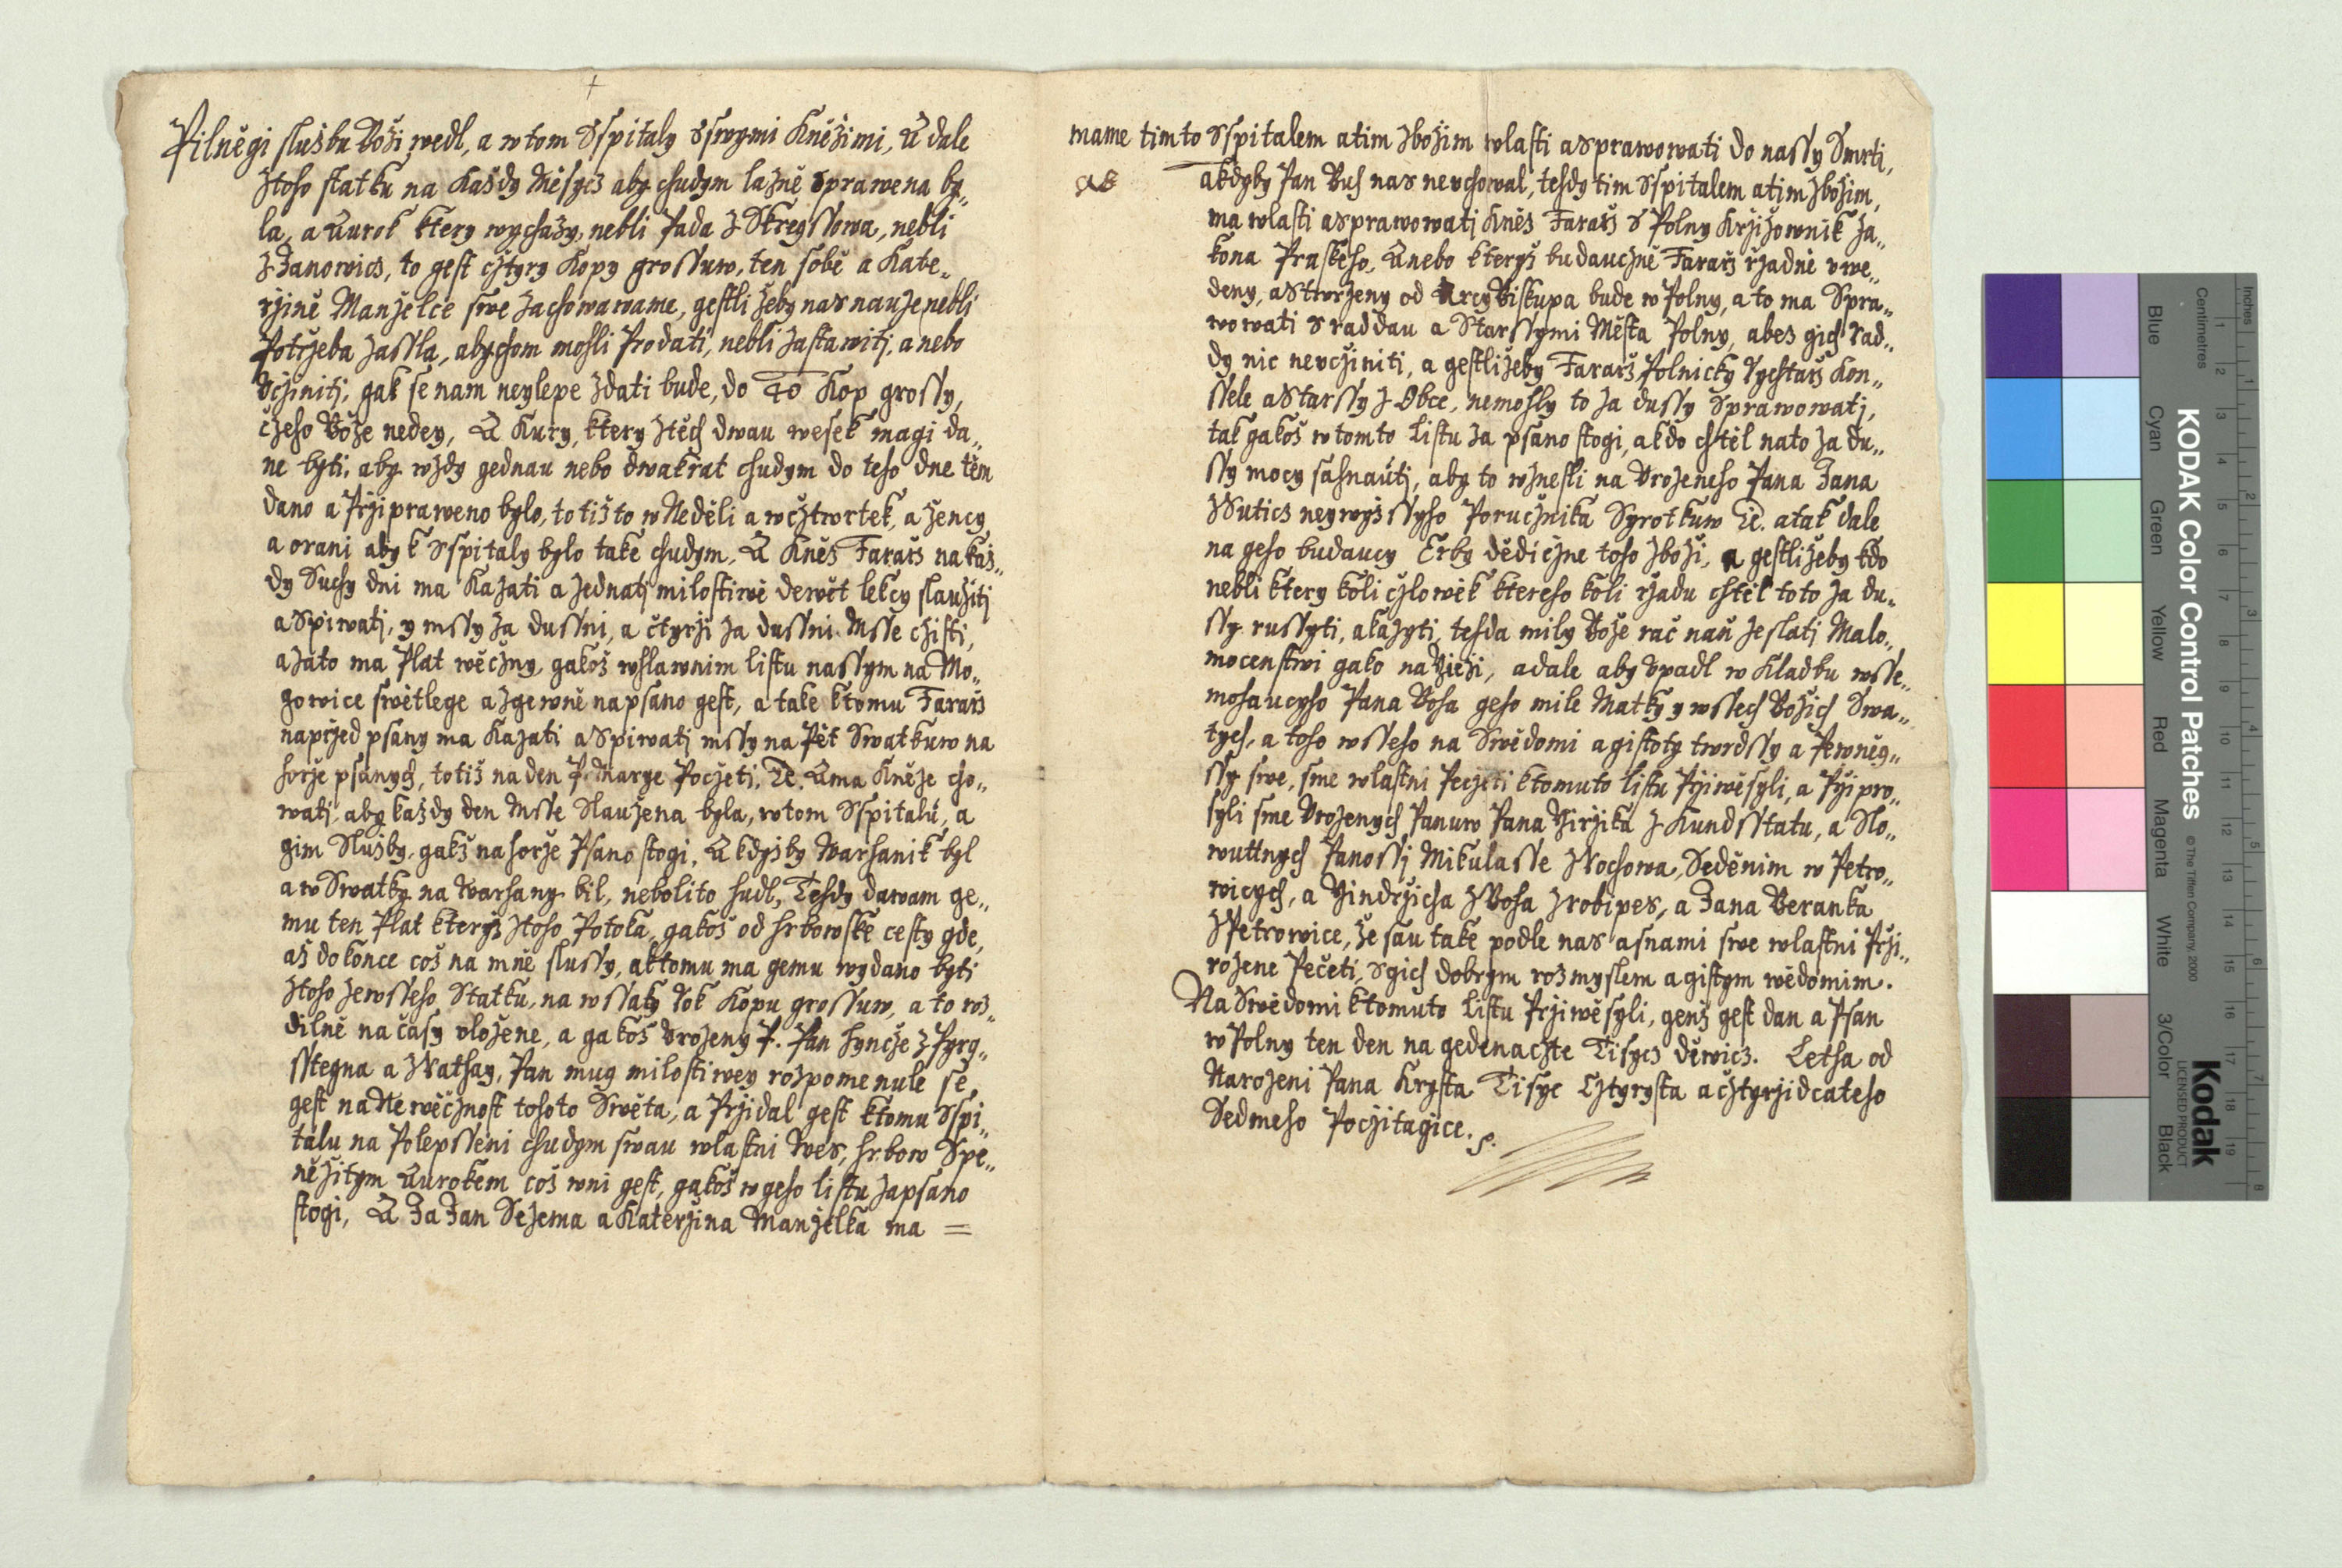 Pilněgi službu Boži wedl, a w tom Sspitaly s swymi Kněžimi, A dale
z toho statku na Každy Měsycz aby chudym lazně sprawena by„
la, a Aurok ktery wychazy, nebli Pada z Skreyssowa, nebli
z Janowicz, to gest cztyry Kopy grossuw, ten sobě a Kate„
rzině Manzelce swe zachowawame, gestli žeby nas nauze nebli
Potrzeba zassla, abychom mohli Prodati, nebli zastawiti, a nebo
Vcziniti, gak se nam neylepe zdati bude, do 40 Kop grossy,
czeho Bože nedey, A Kury, ktery z těch dwau wesek magi da„
ne byti, aby wzdy gednau nebo dwakrat chudym do teho dne těm
dano a Przipraweno bylo, totižto w Neděli a w cztwrtek, a zency
a orani aby k Sspitaly bylo take chudym. A Kněz Fararz na kaž„
dy Suchy dni ma Kazati a zednati milostiwě dewět lekcy slaužiti
a spiwati, y mssy za dussni, a čtyrzi za dussni Msse cžisti,
a zato ma Plat wěczny, gakož w hlawnim listu nassym na Mo„
gowice swětlege a zgewně napsano gest, a take ktomu Fararz
naprzed psany ma Kazati a spiwati mssy na Pět Swatkuw na
horže psanych, totiž na den P. Marye Poczeti, Ec. A ma Kněze cho„
wati, aby každy den Msse Slaužena byla, w tom Sspitalu, a
gim Služby, gakž nahorže Psano stogi, A kdyžby Warhanik byl
a w Swatky na Warhany bil, nebolito hudl, Tehdy dawam ge„
mu ten Plat kteryž z toho Potoka, gakož od hrbowske cesty gde,
až dokonce což na mně slussy, aktomu ma gemu wydano byti
z toho ze wsseho Statku, na wssaky Rok Kopu grossuw, a to roz„
dilně na časy vložene, a gakož Vrozeny P. Pan Hyncze z Pyrg„
sstegna a z Nathay, Pan mug milostiwey rozpomenule se
gest na Newěčnost tohoto Swěta, a Przidal gest ktomu Sspi„
talu na Polepsseni chudym swau wlastni Wes, hrbow Spe„
něžitym Aurokem což wni gest, gakož w geho listu zapsano
stogi, A Ja Jan Sezema a Katerzina Manzelka ma =
mame timto Sspitalem a tim zbožim wlasti a sprawowati do nassy Smrti,
akdyby Pan Buh nas nevchowal, tehdy tim Sspitalem a tim zbožim,
ma wlasti a sprawowati Kněz Fararz s Polny Krzižownik Za„
kona Praskeho, Anebo kteryž budauczně Fararz rzadně vwe„
deny, a Stwrzeny od Arcy Biskupa bude w Polny, a to ma Spra„
wowati s raddau a Starssymi Města Polny, abez gich rad„
dy nic nevcziniti, a gestližeby Fararz Polnicky Rychtarz Kon„
ssele a Starssy z Obce, nemohly to za dussy Sprawowati,
tak gakož w tomto Listu za psano stogi, a kdo chtěl nato za du„
ssy mocy sahnauti, aby to wznesli na Vrozeneho Pana Jana
z Wuticz neywyžssyho Porucžnika Syrotkuw Ec. a tak dale
na geho budaucy Erby dědiczne toho zboži, a gestližeby kdo
nebli ktery koli czlowěk ktereho koli rzadu chtěl toto za du„
ssy russyti, a kazyti, tehda mily Bože rač naň zeslati Malo„
mocenstwi gako na Zieži, a dale aby Vpadl w Kladbu wsse„
mohaucyho Pana Boha geho mile Matky y wssech Božich Swa„
tych, a toho wsseho na Swědomi a gistoty twrdssy a Pewněg„
ssy swe, sme wlastni Peczeti ktomuto listu Przíwěsyli, a Przipro„
syli sme Vrozenych Panuw Pana Girzika z Kundsstatu, a Slo„
wuttnych Panossj Mikulasse z Wochowa, Seděnim w Petro„
wicych, a Gindrzicha z Boha zrobipes, a Jana Beranka
z Petrowice, že sau take podle nas a s nami swe wlastni Przi„
rozene Pečeti, s gich dobrym rozmyslem a gistym wědomim.
Na Swědomi ktomuto Listu Przíwěsyli, genž gest dan a Psan
w Polny ten den na gedenaczte Tisycz děwicz. Letha od
Narozeni Pana Krysta Tisyc Cztyrysta a čztyrzidcateho
Sedmeho Poczitagice.